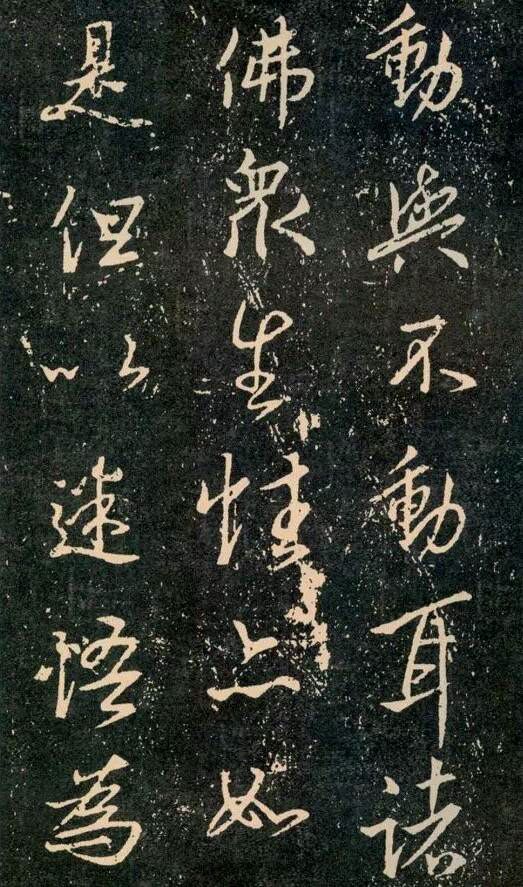 動與不動耳諸
佛衆生性亦如
是但以迷悟為